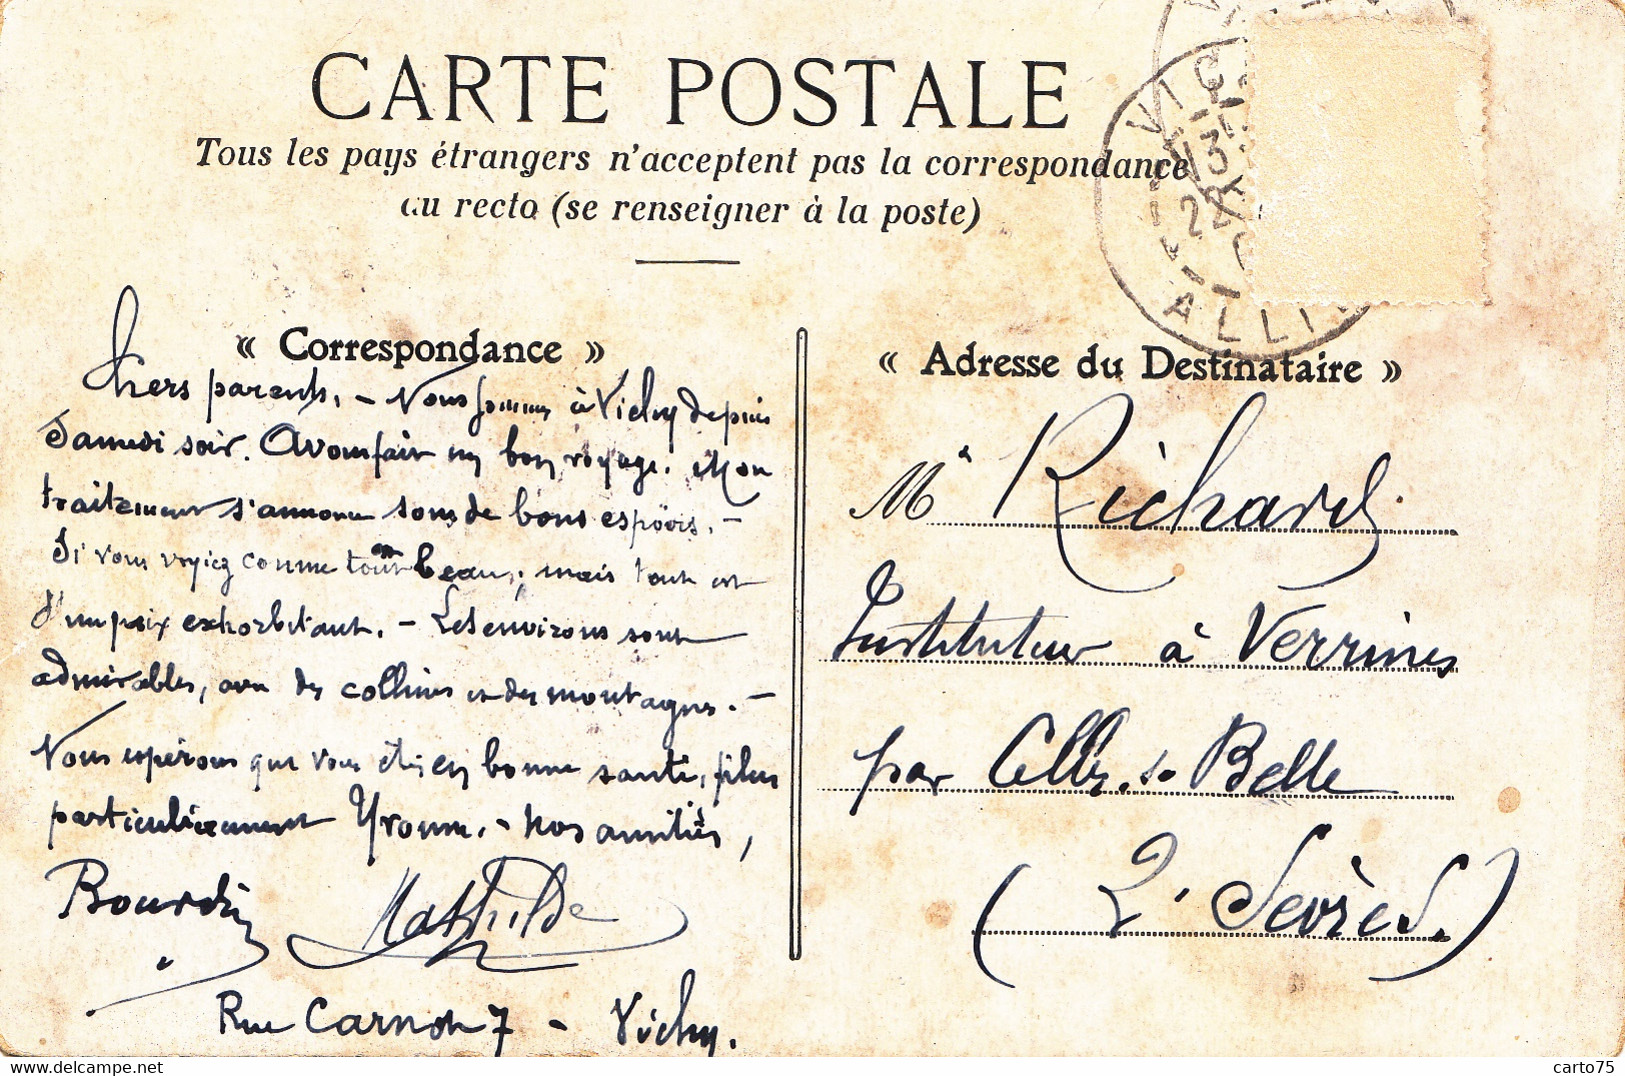 CARTE POSTALE
Tous les pays étrangers n'acceptent pas la correspondance
au recto (se renseigner à la poste)
VIC
13
22
ALLI
« Correspondance »
Chers parents. - Nous sommes à Vichy depuis
Samedi soir. Avons fait un bon voyage. Mon
traitement s'annonce sous de bons espoirs. -
Si vous voyiez comme tout est beau; mais tout est
d'un prix exhorbitant. - Les environs sont
admirables, avec des collines et des montagnes. -
Nous espérons que vous êtes en bonne santé, plus
particulièrement Yvonne. - Nos amitiés,
Bourdin Mathilde
Rue Carnot 7 - Vichy.
« Adresse du Destinataire »
Mr Richard
Instituteur à Verrines
par Celles-s-Belle
(2 Sèvres.)
carto75